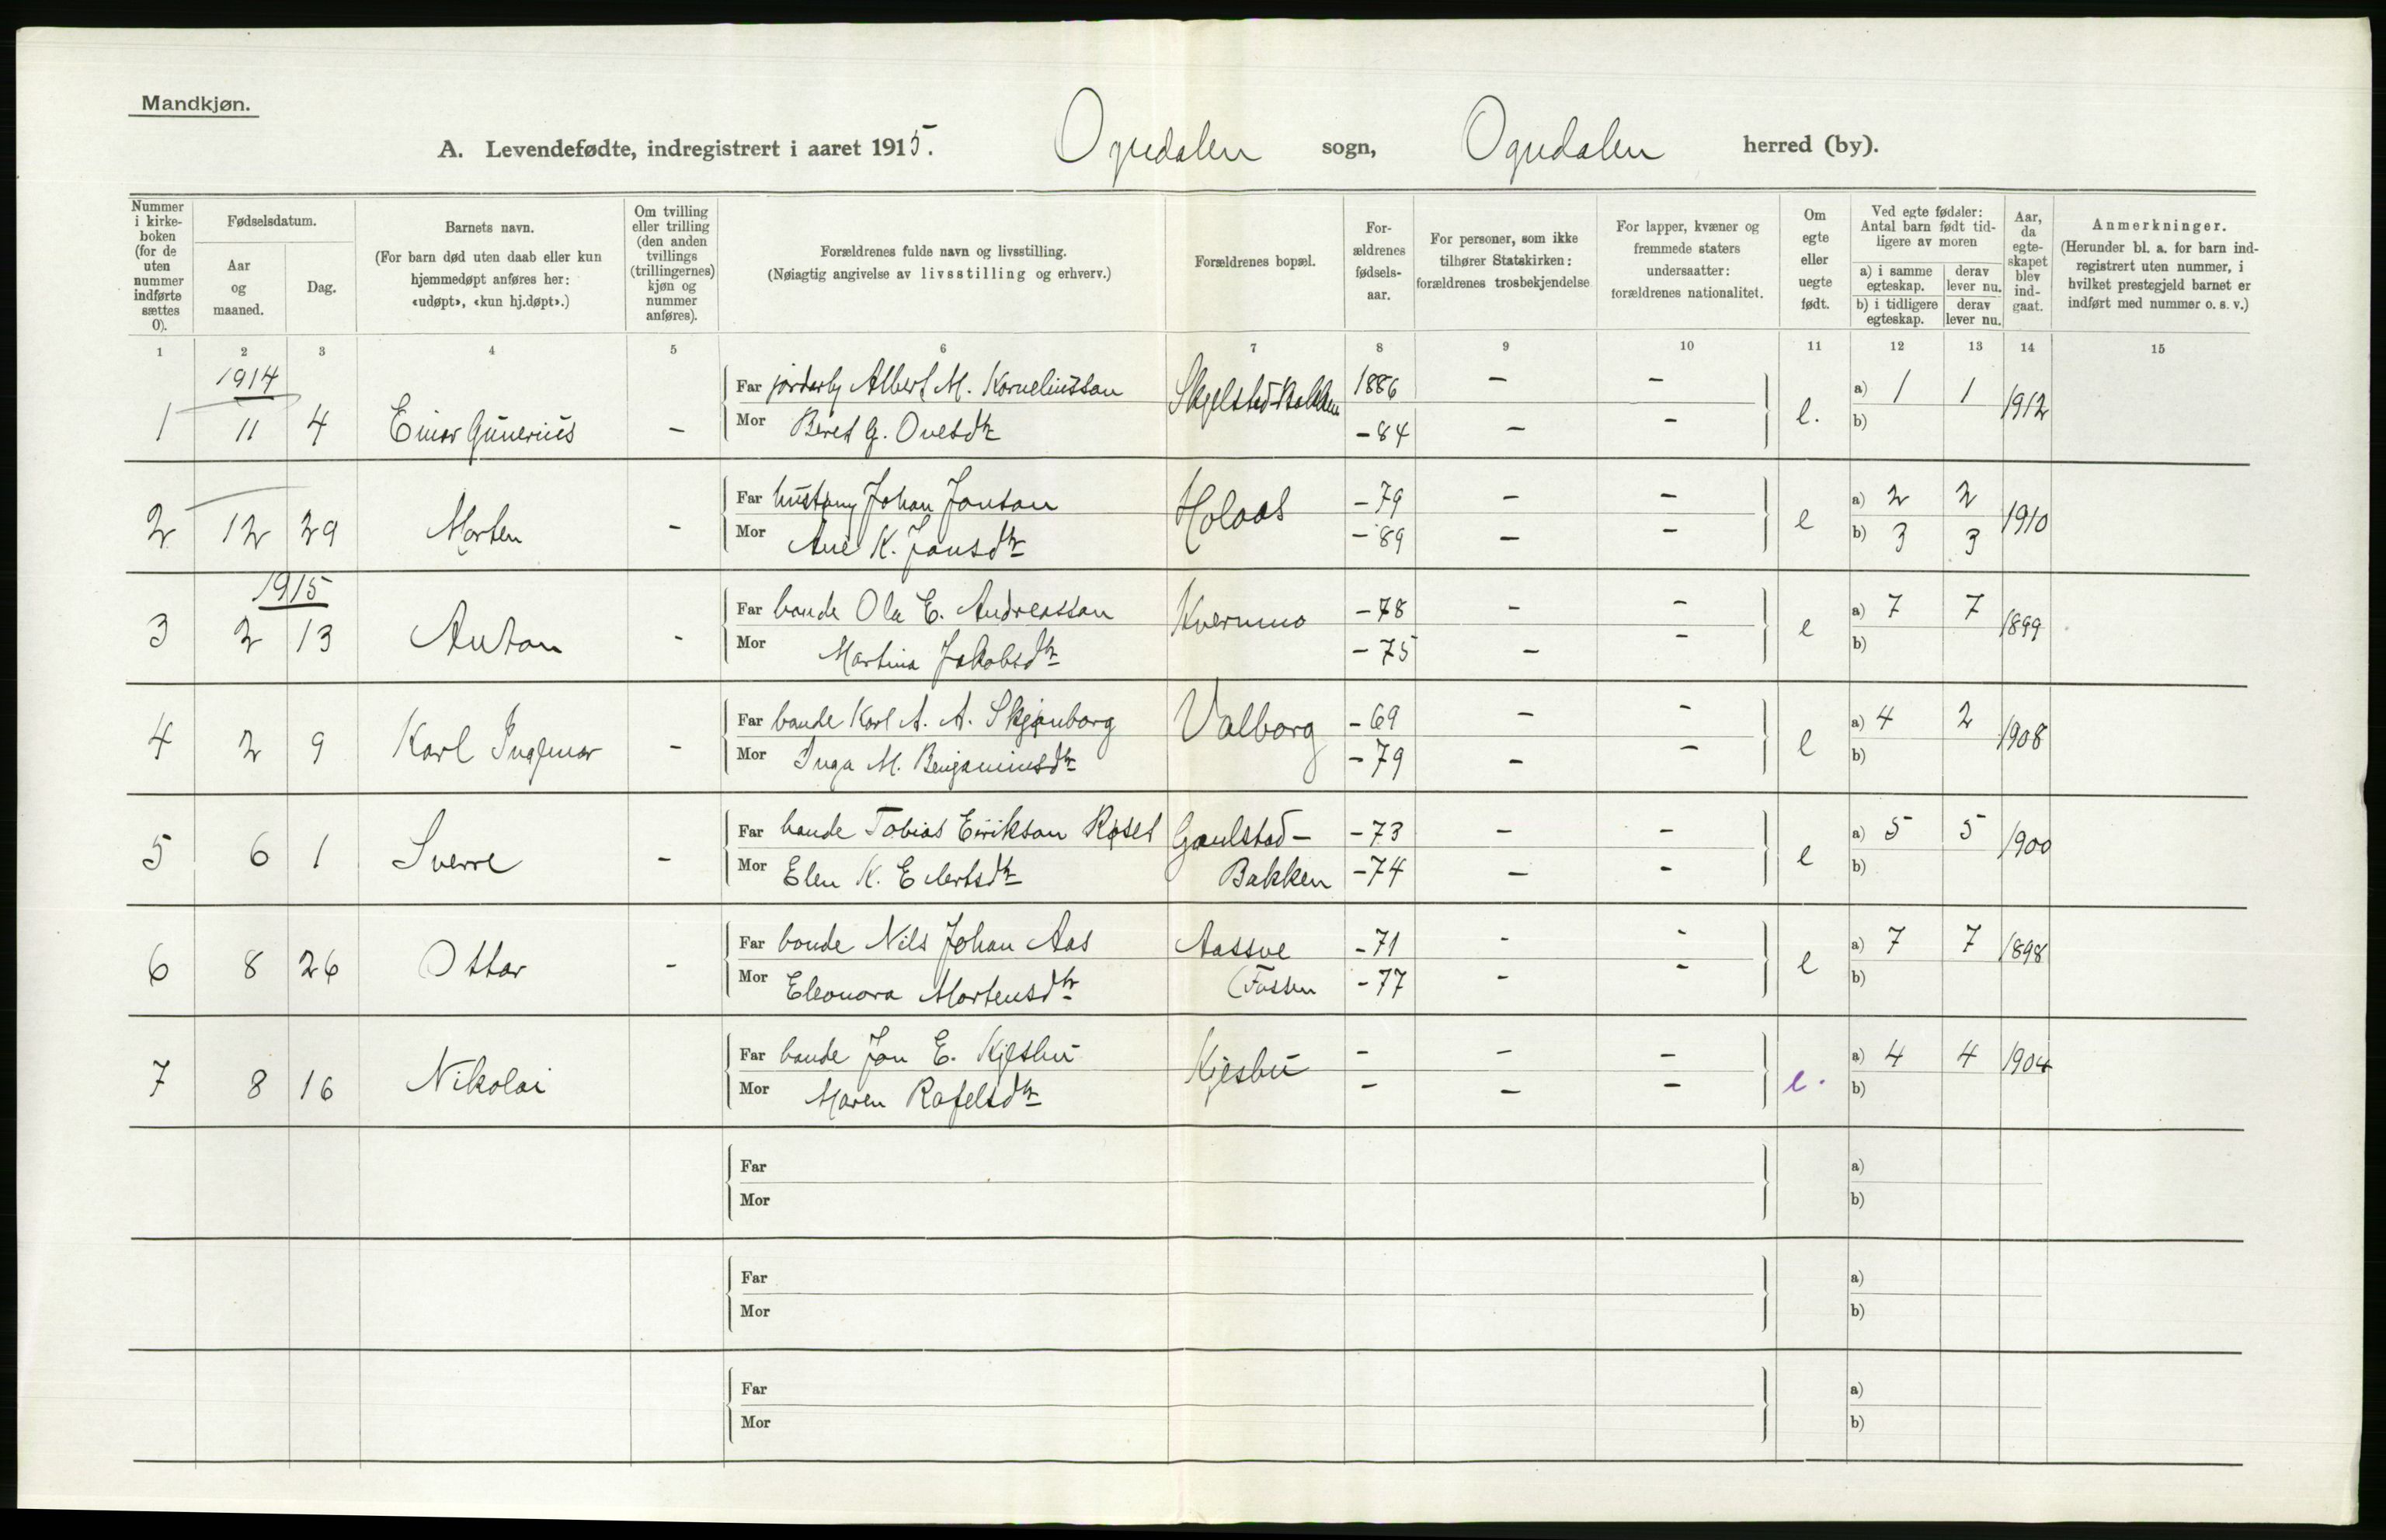 Mandkjøn.
A. Levendefødte, indregistrert i aaret 1915. Ogndalen sogn, Ogndalen herred (by).
Nummer i kirkeboken (for de uten nummer indførte sættes 0).
Fødselsdatum.
Aar og maaned.
Dag.
Barnets navn.
(For barn død uten daab eller kun hjemmedøpt anføres her: «udøpt», «kun hj.døpt».)
Om tvilling eller trilling (den anden tvillings (trillingernes) kjøn og nummer anføres).
Forældrenes fulde navn og livsstilling.
(Nøiagtig angivelse av livsstilling og erhverv.)
Forældrenes bopæl.
Forældrenes fødselsaar.
For personer, som ikke tilhører Statskirken: forældrenes trosbekjendelse
For lapper, kvæner og fremmede staters undersaatter: forældrenes nationalitet.
Om egte eller uegte født.
Ved egte fødsler: Antal barn født tidligere av moren
a) i samme egteskap. derav lever nu.
b) i tidligere egteskap. derav lever nu.
Aar, da egteskapet blev indgaat.
Anmerkninger.
(Herunder bl. a. for barn indregistrert uten nummer, i hvilket prestegjeld barnet er indført med nummer o. s. v.)
1 2 3 4 5 6 7 8 9 10 11 12 13 14 15
1914
1 11 4 Einar Gunerius - Far Albert M. Korneliusson Skjelstad-Bakken 1886 - - e. a) 1 1 1912
Mor Beret G. Ovesdtr - 84 - - b)
2 12 29 Morten - Far Johan Jonson Holaas - 79 - - e a) 2 2 1910
Mor Ane K. Jonsdtr - 89 - - b) 3 3
1915
3 2 13 Anton - Far bonde Ola E. Andreasson Kvernmo - 78 - - e a) 7 7 1899
Mor Martina Jakobsdtr - 75 - - b)
4 2 9 Karl Ingemar - Far bonde Karl A. A. Skjønborg Valborg - 69 - - e a) 4 2 1908
Mor Inga M. Benjaminsdtr - 79 - - b)
5 6 1 Sverre - Far bonde Tobias Eirikson Røset Gaulstad- - 73 - - e a) 5 5 1900
Mor Elen K. Eilertsdtr Bakken - 74 - - b)
6 8 26 Ottar - Far bonde Nils Johan Aas Aassve - 71 - - e a) 7 7 1898
Mor Eleonora Mortensdtr (Fossen - 77 - - b)
7 8 16 Nikolai Far bonde Jon E. Kjesbu Kjesbu - - - e. a) 4 4 1904
Mor Maren Rafelsdtr - - - b)
Far a)
Mor b)
Far a)
Mor b)
Far a)
Mor b)